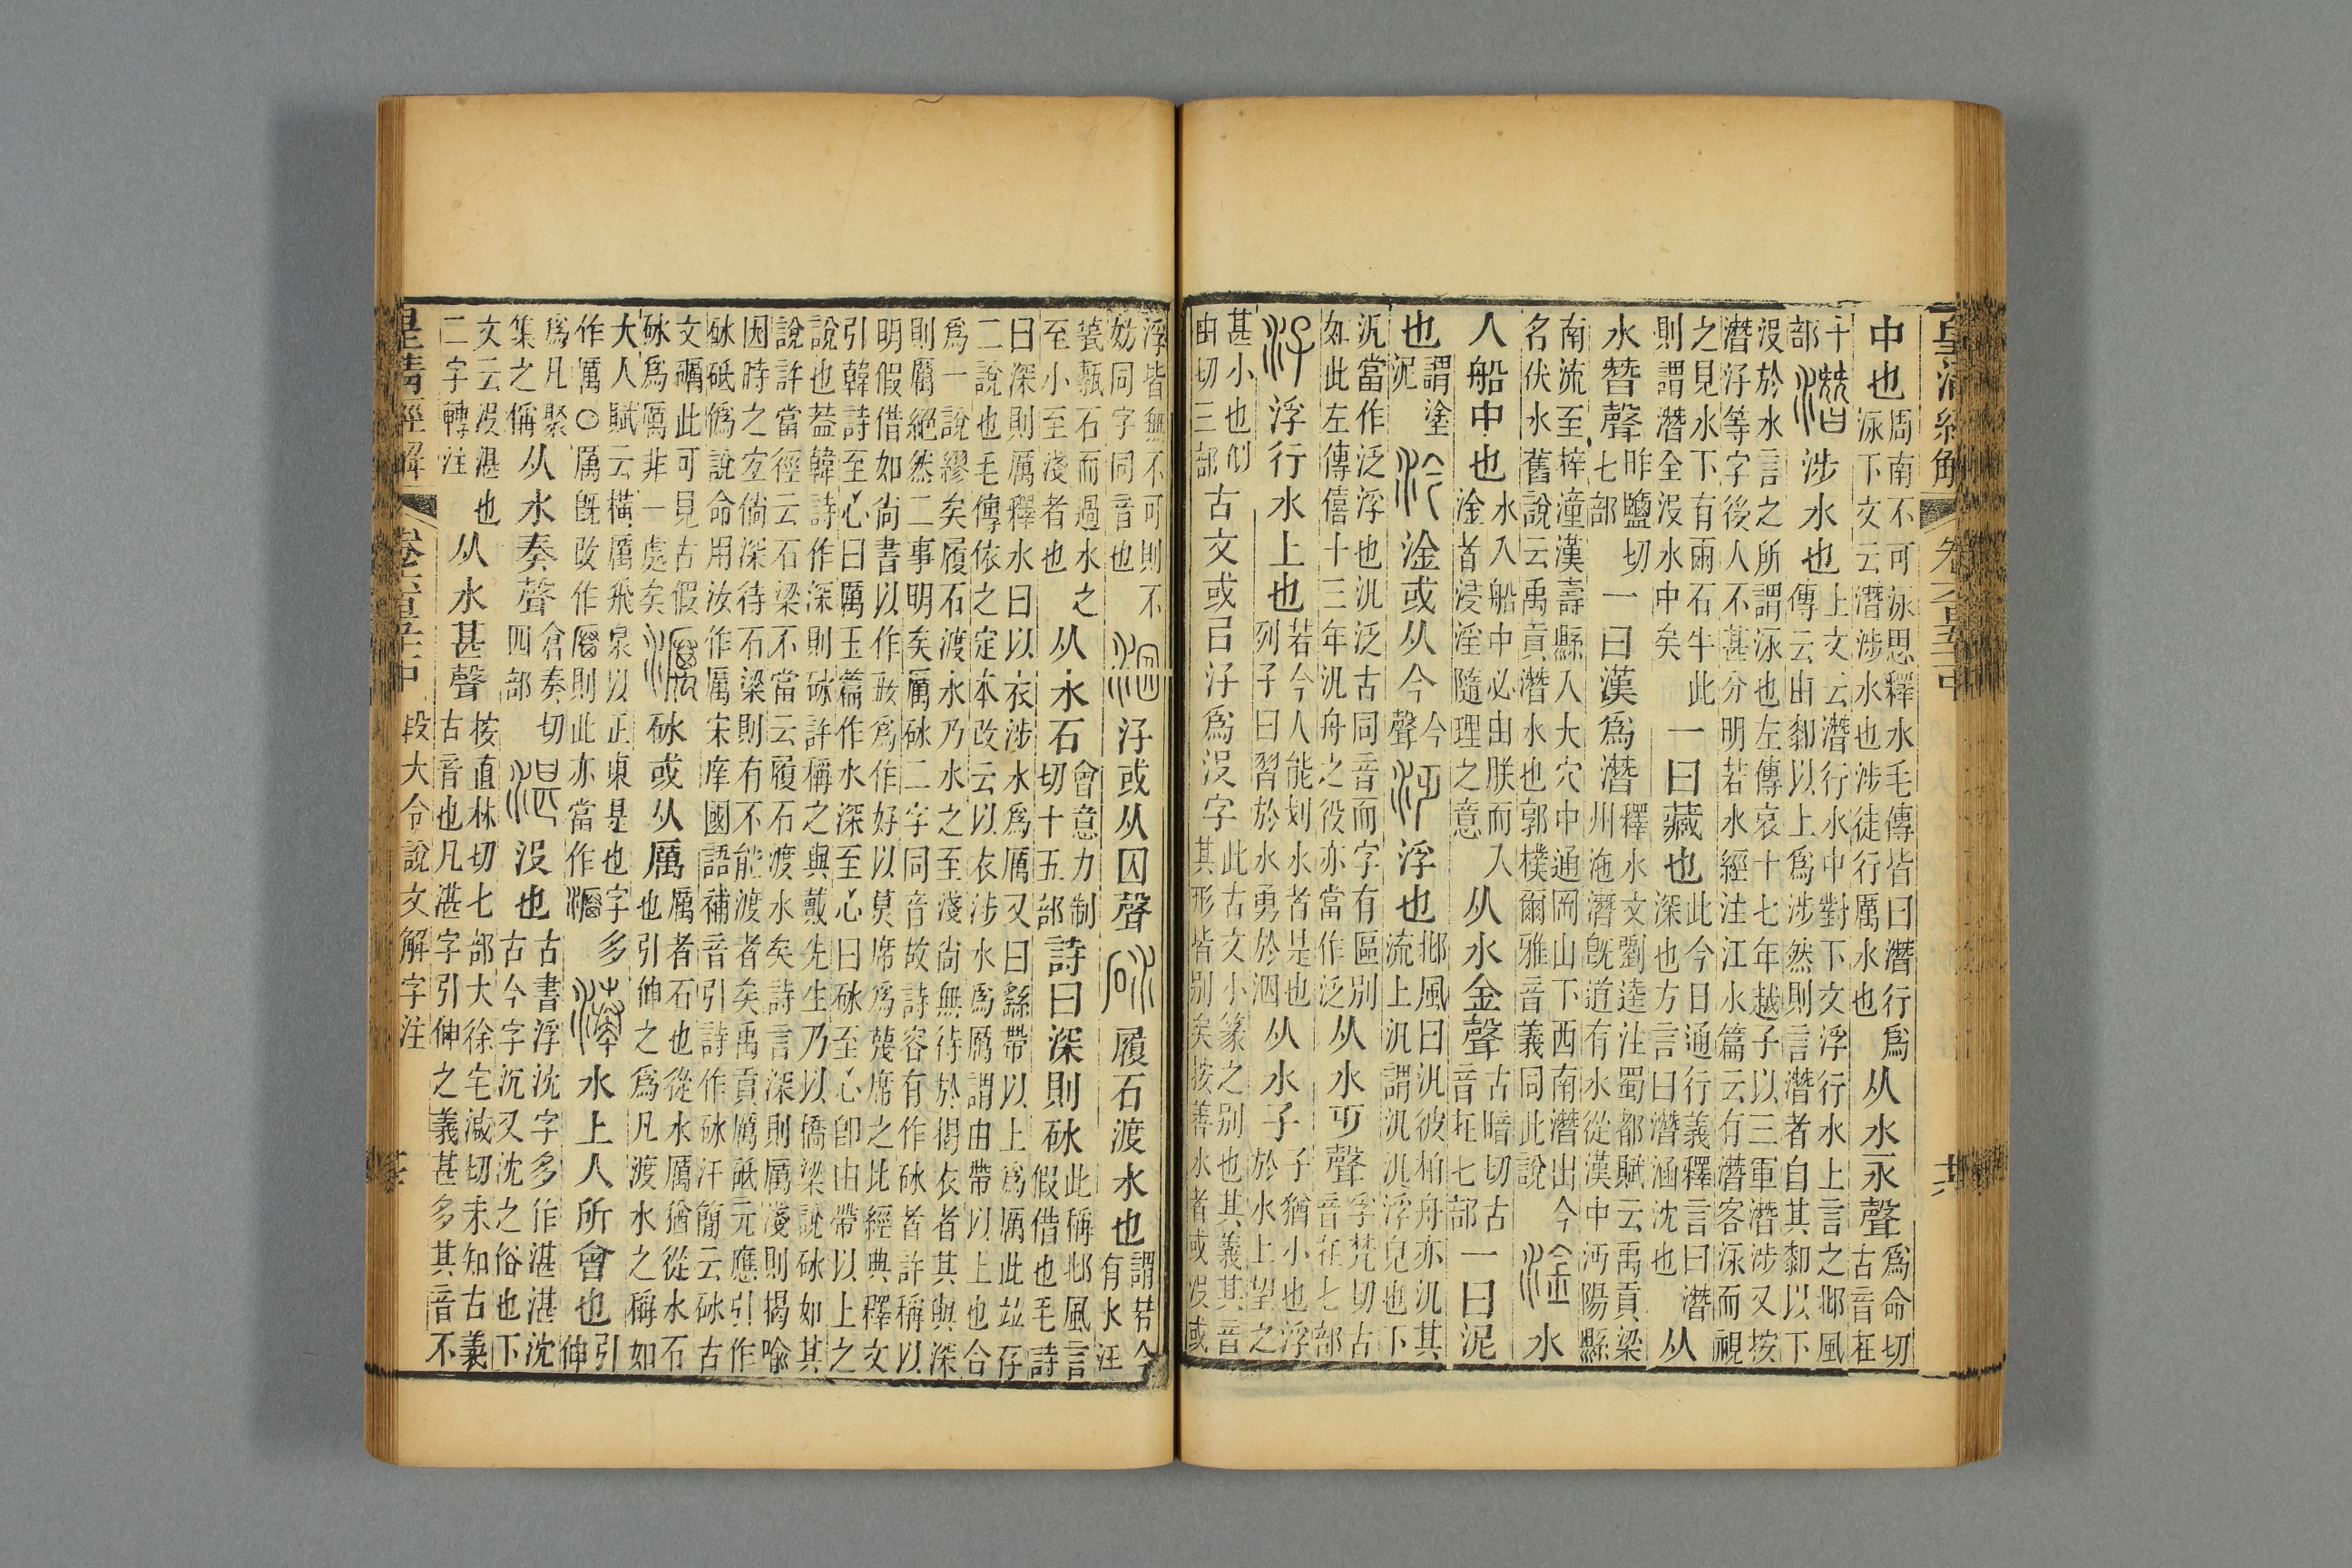 皇清經解
中也周南不可泳思釋水毛傳皆曰潛行爲泳下文云潛涉水也涉徒行厲水也从水永聲爲命切古音在
十部潛涉水也上文云潛行水中對下文浮行水上言之邶風傳云由厀以上爲涉然則言潛者自其厀以下
没於水言之所謂泳也左傳哀十七年越子以三軍潛涉又按潛汓等字後人不甚分明若水經注江水篇云有潛客泳而視
之見水下有兩石牛此則謂潛全没水中矣一曰藏也此今日通行義釋言曰潛深也方言曰潛涵沈也从
水朁聲昨鹽切七部一曰漢爲潛釋水文劉逵注蜀都賦云禹貢梁州沲灊旣道有水從漢中沔陽縣
南流至梓潼漢壽縣入大穴中通岡山下西南潛出今名伏水舊說云禹貢潛水也郭樸爾雅音義同此說淦水
人船中也水入船中必由朕而入淦者浸淫隨理之意从水金聲古暗切古音在七部一曰泥
也謂塗泥汵淦或从今今聲汎浮也邶風曰汎彼柏舟亦汎其流上汎謂汎汎浮皃也下
汎當作泛浮也汎泛古同音而字有區別如此左傳僖十三年汎舟之役亦當作泛从水聲孚梵切古音在七部
汓浮行水上也若今人能划水者是也列子曰習於水勇於泅从水子子猶小也浮於水上望之
甚小也似由切三部古文或㠯汓爲没字此古文小篆之別也其義其音其形皆別矣按善水者或没或
浮皆無不可則不妨同字同音也泅汓或从囚聲砅履石渡水也謂若今有水汪
甃甎石而過水之至小至淺者也从水石會意力制切十五部詩曰深則砅此稱邶風言假借也毛詩
曰深則厲釋水曰以衣涉水爲厲又曰繇帶以上爲厲此竝存二說也毛傳依之定本改云以衣涉水爲厲謂由帶以上也合
爲一說繆矣履石渡水乃水之至淺尙無待於揭衣者其與深則厲絕然二事明矣厲砅二字同音故詩容有作砅者許稱以
明假借如尙書以作㪰爲作好以莫席爲蔑席之比經典釋文引韓詩至心曰厲玉篇作水深至心曰砅至心卽由帶以上之
說也葢韓詩作深則砅許稱之與戴先生乃以橋梁說砅如其說許當徑云石梁不當云履石渡水矣詩言深則厲淺則揭喻
因時之宐倘深待石梁則有不能渡者矣禹貢厲砥元應引作砅砥僞說命用汝作厲宋庠國語補音引詩作砅汗簡云砅古
文礪此可見古假砅爲厲非一處矣濿砅或从厲厲者石也從水厲猶從水石也引伸之爲凡渡水之稱如
大人賦云橫厲飛泉以正東是也字多作厲〇厲旣改作則此亦當作湊水上人所會也引伸
爲凡聚集之稱从水奏聲倉奏切四部湛没也古書浮沈字多作湛湛沈古今字沉又沈之俗也下
文云没湛也二字轉注从水甚聲按直林切七部大徐宅減切未知古義古音也凡湛字引伸之義甚多其音不
皇清經解 段大令說文解字注